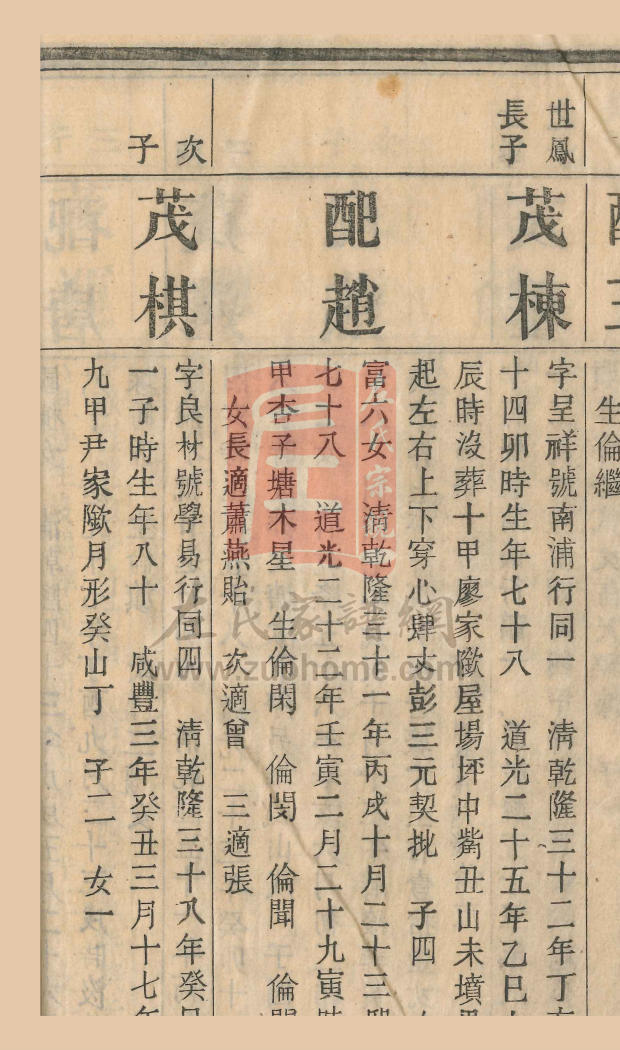 生倫繼
世鳳
長子
茂棟
字呈祥號南浦行同一 清乾隆三十二年丁
十四卯時生年七十八 道光二十五年乙巳
辰時沒葬十甲廖家㘰屋場坪中嘴丑山未墳
起左右上下穿心肆丈彭三元契批 子四
配趙
富六女 清乾隆三十一年丙戌十月二十三
七十八 道光二十二年壬寅二月二十九寅
甲杏子塘木星 生倫閑 倫閔 倫聞 倫
女長適蕭燕貽 次適曾 三適張
次
子
茂棋
字良材號學易行同四 清乾隆三十八年癸
一子時生年八十 咸豐三年癸丑三月十七
九甲尹家㘰月形癸山丁 子二 女一
左氏家譜網
www.zuohome.com